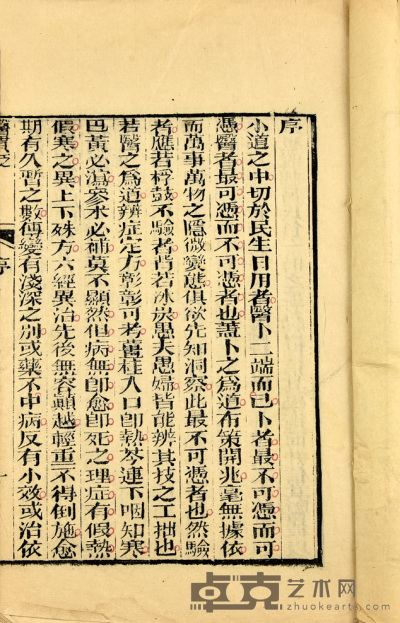 序
小道之中切於民生日用者醫卜二端而已卜者最不可憑而可
憑醫者最可憑而不可憑者也蓋卜之爲道布策開兆毫無據依
而萬事萬物之隱微變態俱欲先知洞察此最不可憑者也然驗
者應若桴鼓不驗者背若冰炭愚夫愚婦皆能辨其技之工拙也
若醫之爲道辨症定方彰彰可考薑桂入口卽熱芩連下咽知寒
巴黃必瀉參朮必補莫不顯然但病無卽愈卽死之理症有假熱
假寒之異上下殊方六經異治先後無容顚越輕重不得倒施愈
期有久暫之數傳變有淺深之別或藥不中病反有小效或治依
序
一
卓克艺术网
zhuokearts.com